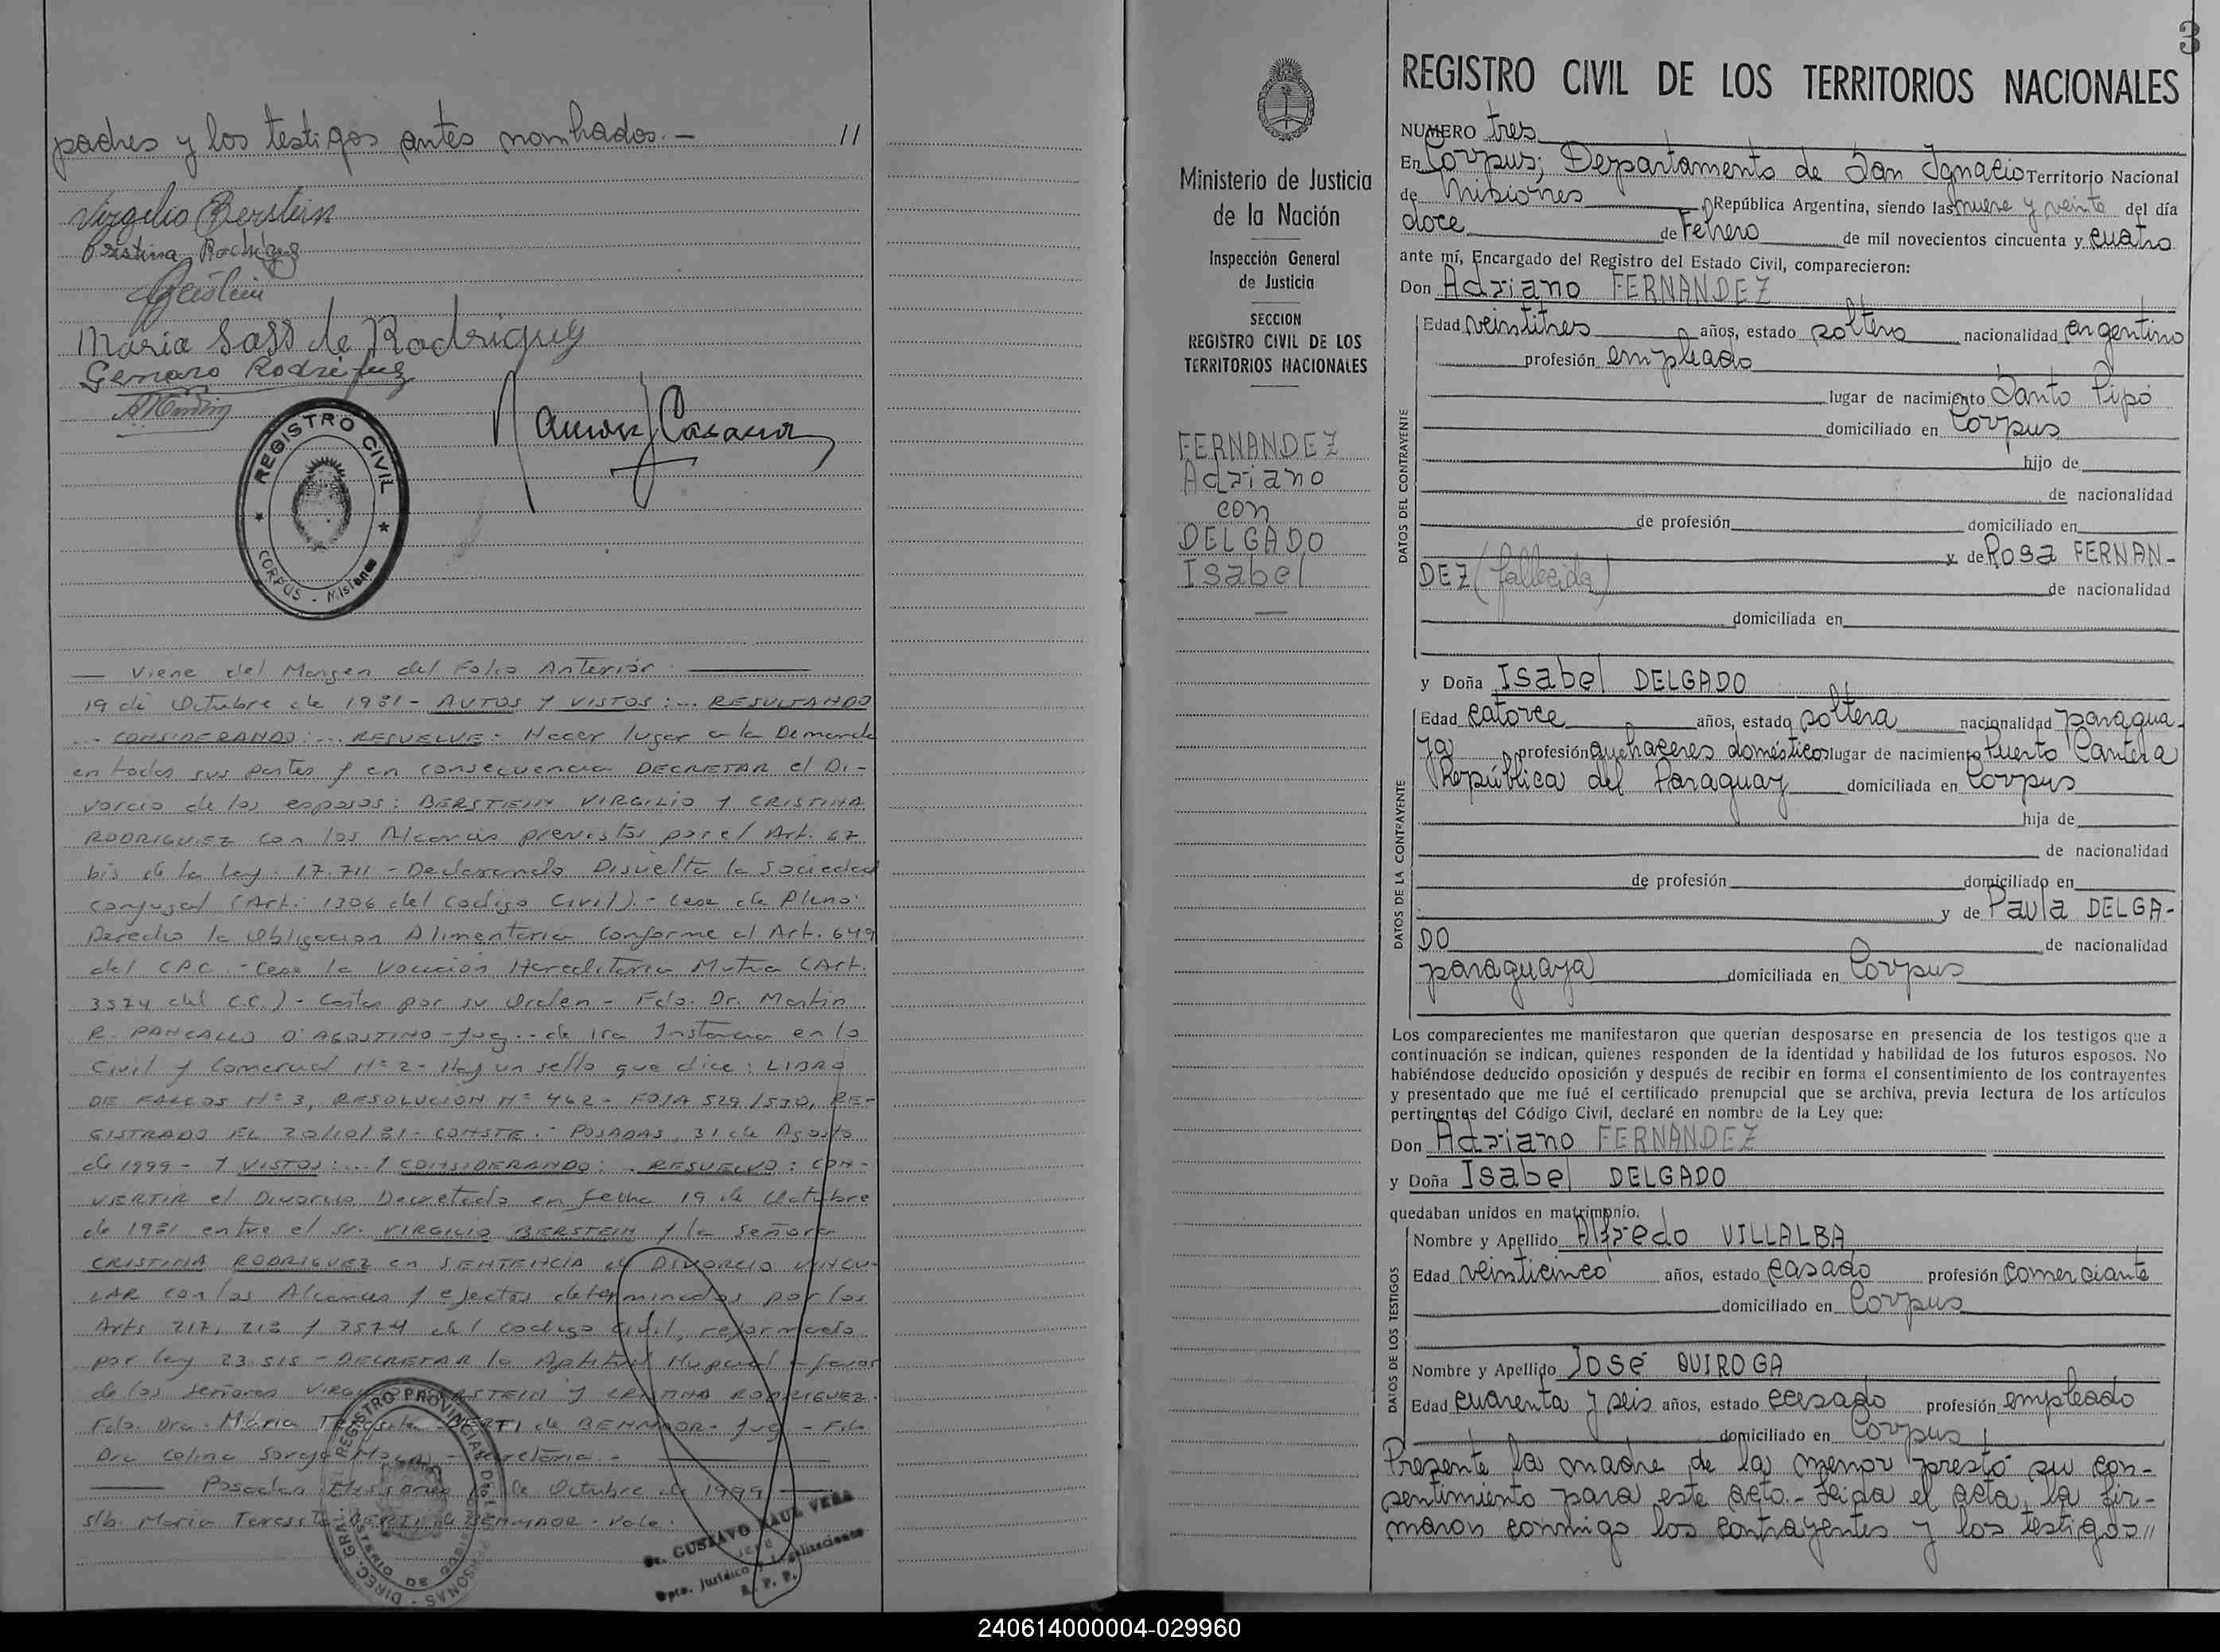 padres y los testigos antes nombrados.- //
Virgilio Berstein
Cristina Rodriguez
Berstein
Maria Sass de Rodriguez
Genaro Rodriguez
REGISTRO CIVIL
CORPUS - Misiones
— Viene del Margen del Folio Anterior. —
19 de Octubre de 1981 - AUTOS Y VISTOS:... RESULTANDO
... CONSIDERANDO:... RESUELVE: Hacer lugar a la Demanda
en todas sus partes y en consecuencia DECRETAR el Di-
vorcio de los esposos: BERSTEIN VIRGILIO Y CRISTINA
RODRIGUEZ con los Alcances previstos por el Art. 67
bis de la Ley. 17.711 - Declarando Disuelta la Sociedad
Conyugal (Art. 1306 del Codigo Civil). - Cese de Pleno
Derecho la Obligacion Alimentaria Conforme al Art. 649
del C.P.C. - Cese la Vocación Hereditaria Mutua (Art.
3574 del C.C.) - Costas por su Orden - Fdo. Dr. Martin
R. PANCALLO D'AGOSTINO - Juez.. de 1ra Instancia en lo
Civil y Comercial Nº 2 - Hay un sello que dice: LIBRO
DE FALLOS Nº 3, RESOLUCION Nº 462 - FOJA 529/530, RE-
GISTRADO EL 20/10/81 - CONSTE. - POSADAS, 31 de Agosto
de 1999 - Y VISTOS:... Y CONSIDERANDO:.. RESUELVO: CON-
VERTIR el Divorcio Decretado en fecha 19 de Octubre
de 1981 entre el Sr. VIRGILIO BERSTEIN y la Señora
CRISTINA RODRIGUEZ en SENTENCIA de DIVORCIO VINCU-
LAR con los Alcances y efectos determinados por los
Arts 217, 218 y 3574 del Codigo Civil, reformado
por Ley 23.515 - DECRETAR la Aptitud Nupcial a favor
de los Señores VIRGILIO BERSTEIN Y CRISTINA RODRIGUEZ.
Fdo. Dra. Maria Teresita BERTI de BENMAOR - Juez - Fdo.
Dra Celina Secretaria. -
— Posadas, Misiones de Octubre de 1999 —
s/b. Maria Teresita BERTI de BENMAOR. Vale.
Dr. GUSTAVO RAUL VERA
JEFE
Dpto. Jurídico y Legalizaciones
R. P. P.
3
REGISTRO CIVIL DE LOS TERRITORIOS NACIONALES
Ministerio de Justicia
de la Nación
Inspección General
de Justicia
SECCION
REGISTRO CIVIL DE LOS
TERRITORIOS NACIONALES
FERNANDEZ
Adriano
con
DELGADO
Isabel
NUMERO tres
En Corpus; Departamento de San Ignacio Territorio Nacional
de Misiones República Argentina, siendo las nueve y veinte del día
doce de Febrero de mil novecientos cincuenta y cuatro
ante mí, Encargado del Registro del Estado Civil, comparecieron:
Don Adriano FERNANDEZ
DATOS DEL CONTRAYENTE
Edad veintitres años, estado soltero nacionalidad argentino
profesión empleado
lugar de nacimiento Santo Pipó
domiciliado en Corpus
hijo de
de nacionalidad
de profesión domiciliado en
y de Rosa FERNAN-
DEZ (fallecida) de nacionalidad
domiciliada en
y Doña Isabel DELGADO
DATOS DE LA CONTRAYENTE
Edad catorce años, estado soltera nacionalidad paragua-
ya profesión quehaceres domésticos lugar de nacimiento Puerto Cantera
República del Paraguay domiciliada en Corpus
hija de
de nacionalidad
de profesión domiciliado en
y de Paula DELGA-
DO de nacionalidad
paraguaya domiciliada en Corpus
Los comparecientes me manifestaron que querían desposarse en presencia de los testigos que a
continuación se indican, quienes responden de la identidad y habilidad de los futuros esposos. No
habiéndose deducido oposición y después de recibir en forma el consentimiento de los contrayentes
y presentado que me fué el certificado prenupcial que se archiva, previa lectura de los artículos
pertinentes del Código Civil, declaré en nombre de la Ley que:
Don Adriano FERNANDEZ
y Doña Isabel DELGADO
quedaban unidos en matrimonio.
DATOS DE LOS TESTIGOS
Nombre y Apellido Alfredo VILLALBA
Edad veinticinco años, estado casado profesión comerciante
domiciliado en Corpus
Nombre y Apellido José QUIROGA
Edad cuarenta y seis años, estado casado profesión empleado
domiciliado en Corpus
Presente la madre de la menor prestó su con-
sentimiento para este acto.- Leida el acta, la fir-
maron conmigo los contrayentes y los testigos//
240614000004-029960